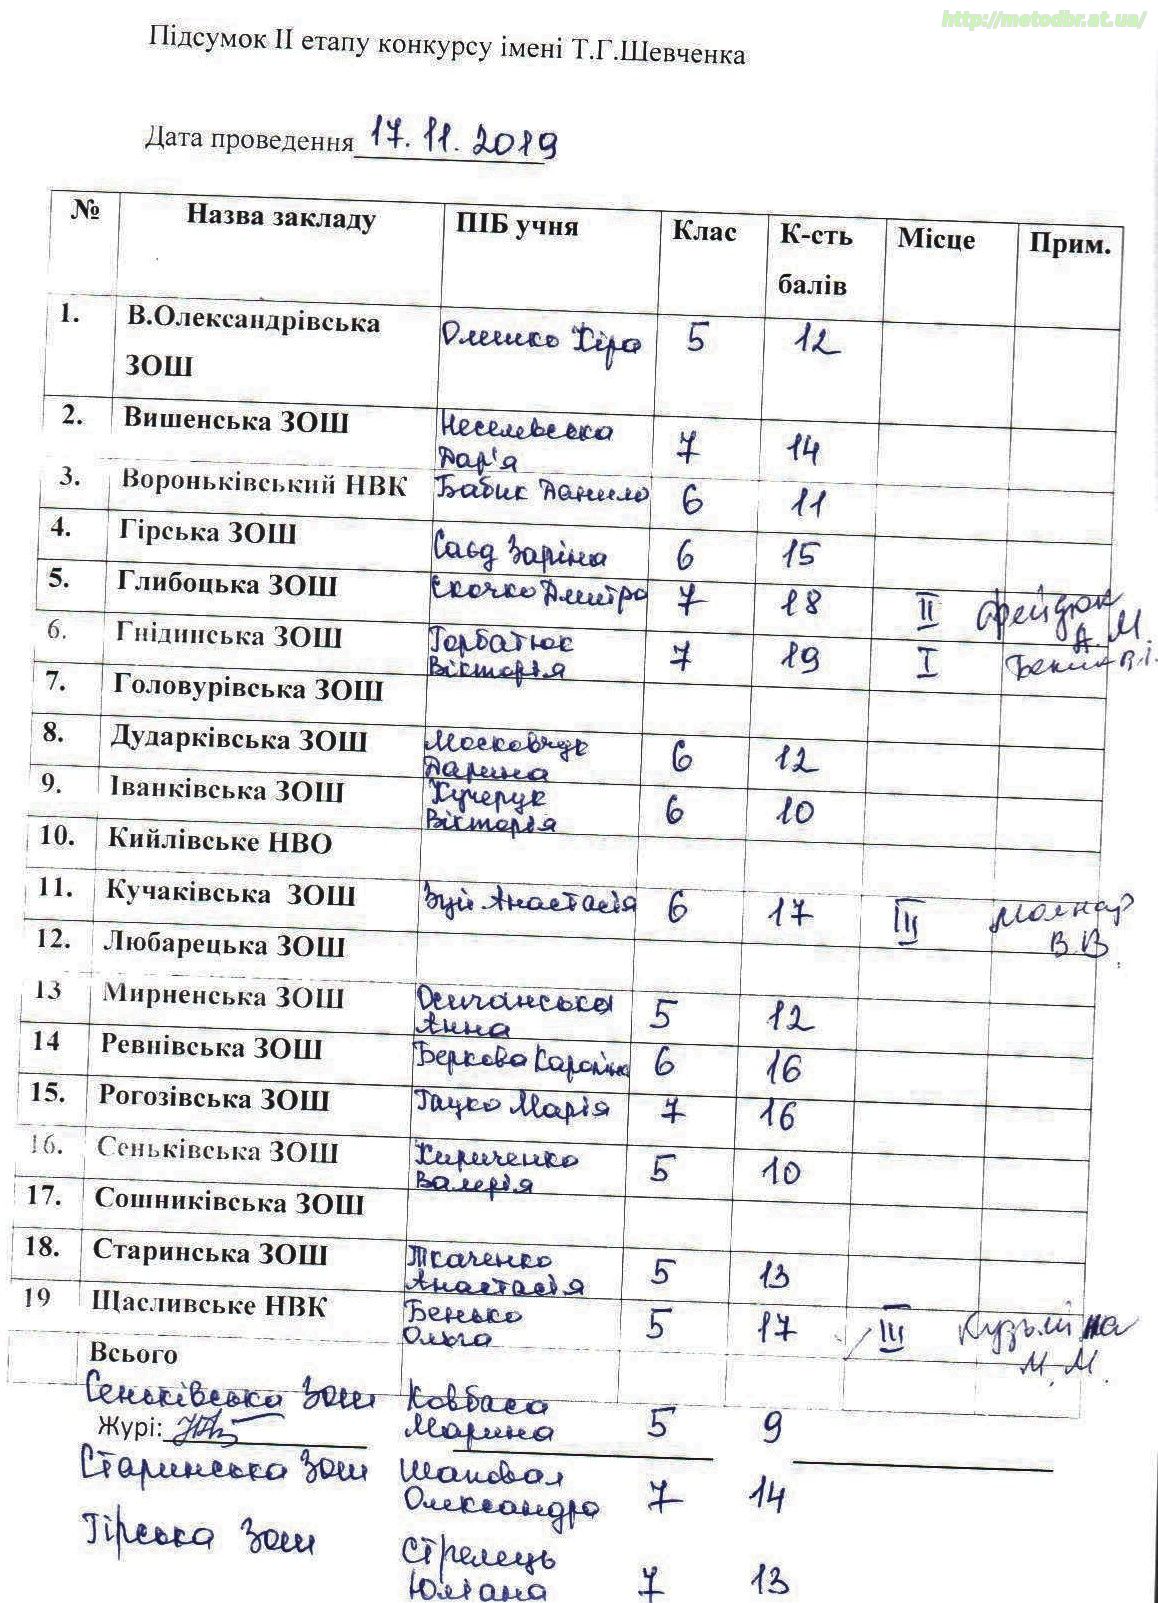 http://metodbr.at.ua/
Підсумок ІІ етапу конкурсу імені Т.Г.Шевченка
Дата проведення 17.11.2019
№ Назва закладу ПІБ учня Клас К-сть балів Місце Прим.
1. В.Олександрівська ЗОШ Олешко Кіра 5 12
2. Вишенська ЗОШ Неселевська Дар'я 7 14
3. Вороньківський НВК Бабик Данило 6 11
4. Гірська ЗОШ Саєд Заріна 6 15
5. Глибоцька ЗОШ Скочко Дмитро 7 18 ІІ А.М.
6. Гнідинська ЗОШ Горбатюк Вікторія 7 19 І В.І.
7. Головурівська ЗОШ
8. Дударківська ЗОШ Московчук Дарина 6 12
9. Іванківська ЗОШ Кучерук Вікторія 6 10
10. Кийлівське НВО
11. Кучаківська ЗОШ Зуй Анастасія 6 17 ІІІ Молнар В.В.
12. Любарецька ЗОШ
13 Мирненська ЗОШ Осичанська Анна 5 12
14 Ревнівська ЗОШ Беркова Кароліна 6 16
15. Рогозівська ЗОШ Гацко Марія 7 16
16. Сеньківська ЗОШ Кириченко Валерія 5 10
17. Сошниківська ЗОШ
18. Старинська ЗОШ Ткаченко Анастасія 5 13
19 Щасливське НВК Бенько Ольга 5 17 ІІІ Кузьміна М.М.
Всього
Сеньківська ЗОШ Ковбаса Марина 5 9
Журі:
Старинська ЗОШ Шаповал Олександра 7 14
Гірська ЗОШ Стрелець Юліана 7 13